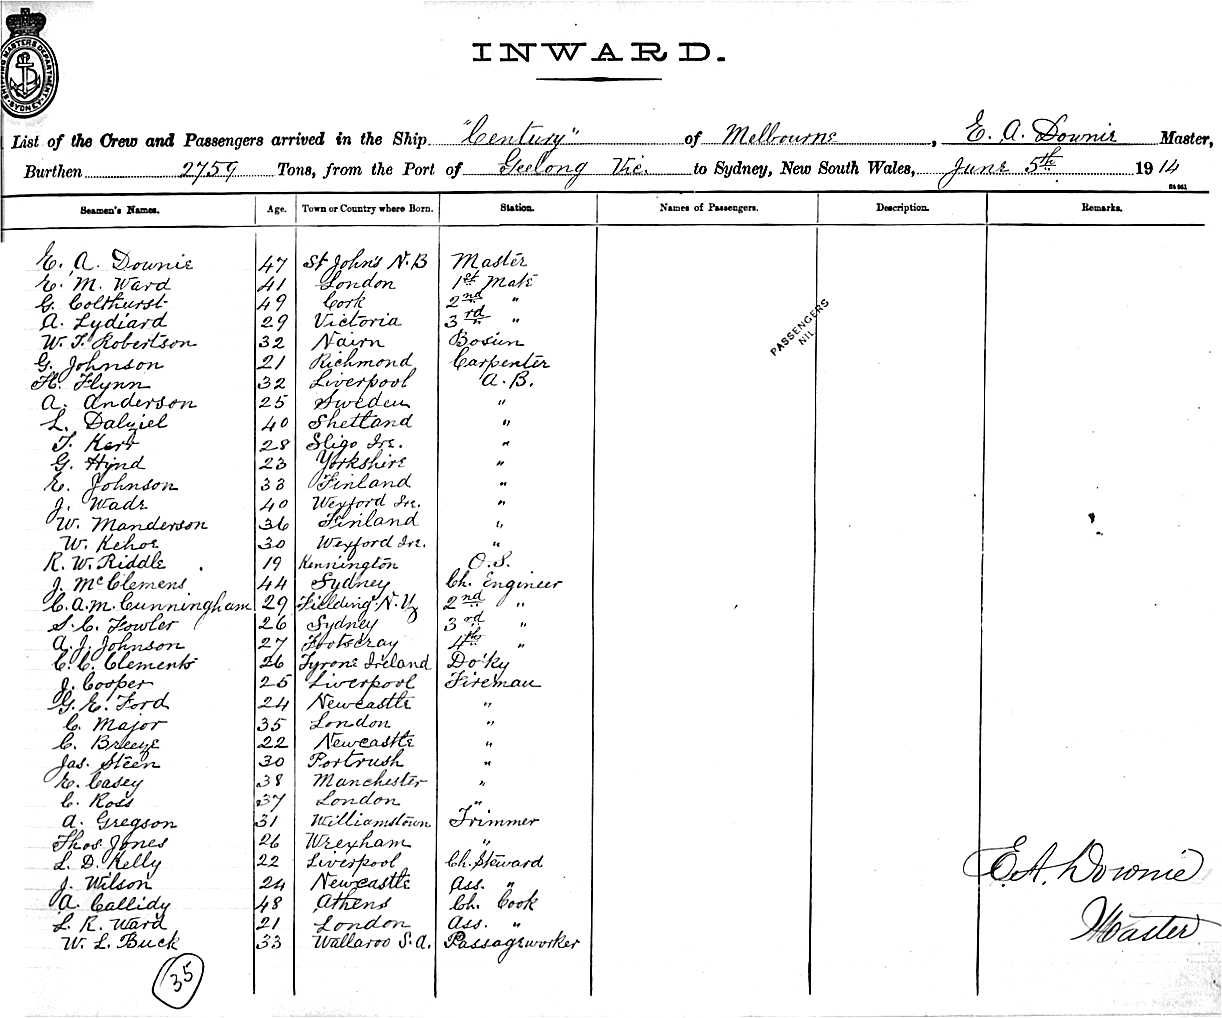 SHIPPING MASTERS DEPARTMENT SYDNEY
INWARD.
List of the Crew and Passengers arrived in the Ship "Century" of Melbourne, E. A. Downie Master,
Burthen 2759 Tons, from the Port of Geelong Vic. to Sydney, New South Wales, June 5th 1914
Seamen's Names. Age. Town or Country where Born. Station. Names of Passengers. Description. Remarks.
E. A. Downie 47 St John's N.B Master
E. M. Ward 41 London 1st Mate
G. Colthurst 49 Cork 2nd "
A. Lydiard 29 Victoria 3rd "
PASSENGERS
NIL
W. T. Robertson 32 Nairn Bosun
G. Johnson 21 Richmond Carpenter
H. Flynn 32 Liverpool A.B.
A. Anderson 25 Sweden "
L. Dalziel 40 Shetland "
T. Kerr 28 Sligo Ire. "
G. Hynd 23 Yorkshire "
E. Johnson 33 Finland "
J. Wade 40 Wexford Ire. "
W. Manderson 36 Finland "
W. Kehoe 30 Wexford Ire. "
R. W. Riddle 19 Kennington O.S.
J. McClemens 44 Sydney Ch. Engineer
C. A. M. Cunningham 29 Fielding N.Z 2nd "
S. C. Fowler 26 Sydney 3rd "
A. J. Johnson 27 Footscray 4th "
C. C. Clements 26 Tyrone Ireland Do'ky
J. Cooper 25 Liverpool Fireman
G. E. Ford 24 Newcastle "
C. Major 35 London "
C. Breeze 22 Newcastle "
Jas. Steen 30 Portrush "
E. Casey 38 Manchester "
C. Ross 37 London "
A. Gregson 31 Williamstown Trimmer
Thos Jones 26 Wrexham "
L. D. Kelly 22 Liverpool Ch. Steward
J. Wilson 24 Newcastle Ass. "
A. Callidy 48 Athens Ch. Cook
L. R. Ward 21 London Ass. "
W. L. Buck 33 Wallaroo S.A. Passageworker
E. A. Downie
Master
35